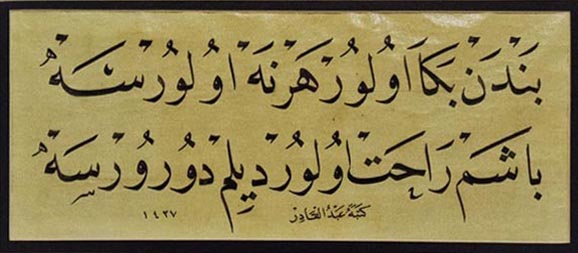 بَنْدَنْ بَكَا اُولُورْ هَرْ نَهْ اُولُورْسَهْ
بَاشَمْ رَاحَتْ اُولُورْ دِيلِمْ دُورُورْسَهْ
كتبه عبد القادر
١٤٣٧